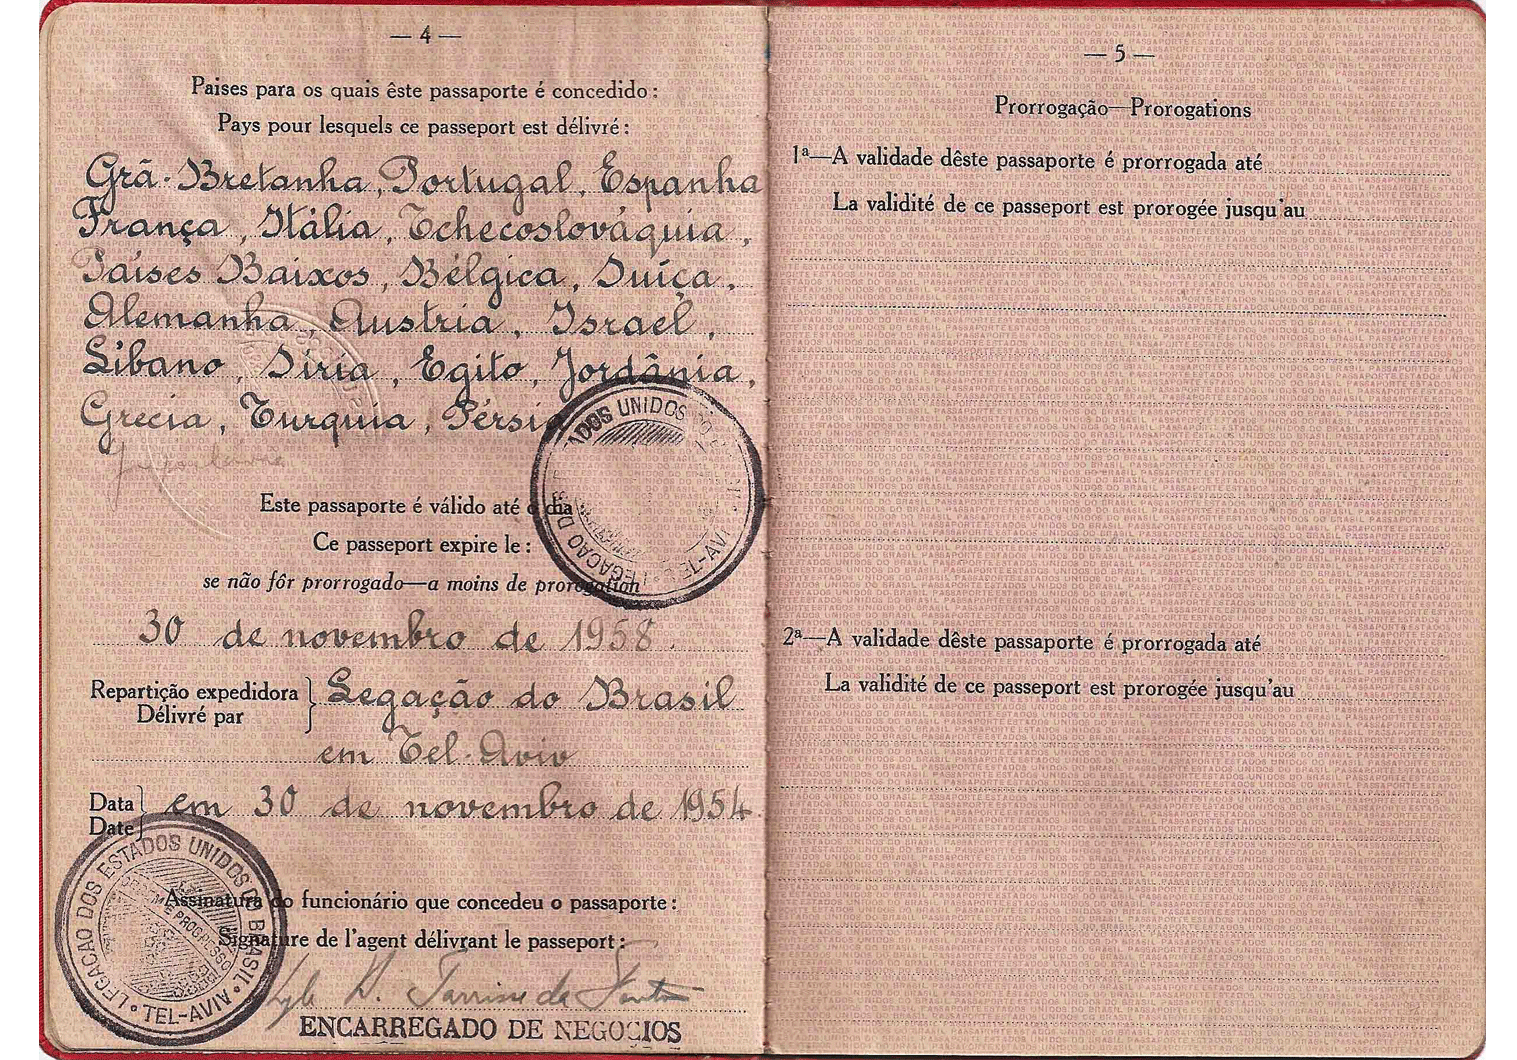 — 4 —
Paises para os quais êste passaporte é concedido :
Pays pour lesquels ce passeport est délivré :
Grã-Bretanha, Portugal, Espanha
França, Itália, Tchecoslováquia,
Países Baixos, Bélgica, Suíça,
Alemanha, Austria, Israel,
Líbano, Síria, Egito, Jordânia,
Grécia, Turquia, Pérsia
Este passaporte é válido até o dia
Ce passeport expire le :
se não fôr prorrogado—a moins de prorogation
30 de novembro de 1958.
Repartição expedidora } Legação do Brasil
Délivré par
em Tel-Aviv
Data } em 30 de novembro de 1954.
Date
LEGACAO DOS ESTADOS UNIDOS DO BRASIL • TEL-AVIV •
Assinatura do funcionário que concedeu o passaporte :
Signature de l'agent délivrant le passeport :
ENCARREGADO DE NEGOCIOS
— 5 —
Prorrogação—Prorogations
1ª—A validade dêste passaporte é prorrogada até
La validité de ce passeport est prorogée jusqu'au
2ª—A validade dêste passaporte é prorrogada até
La validité de ce passeport est prorogée jusqu'au